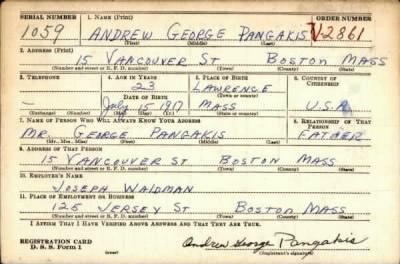 SERIAL NUMBER 1. NAME (Print) ORDER NUMBER
1059 ANDREW GEORGE PANGAKIS V-2861
(First) (Middle) (Last)
2. ADDRESS (Print)
15 VANCOUVER ST BOSTON MASS
(Number and street or R. F. D. number) (Town) (County) (State)
3. TELEPHONE 4. AGE IN YEARS 5. PLACE OF BIRTH 6. COUNTRY OF CITIZENSHIP
23 LAWRENCE
DATE OF BIRTH (Town or county)
— July 15 1917 MASS U.S.A
(Exchange) (Number) (Mo.) (Day) (Yr.) (State or country)
7. NAME OF PERSON WHO WILL ALWAYS KNOW YOUR ADDRESS 8. RELATIONSHIP OF THAT PERSON
MR. GEORGE PANGAKIS FATHER
(Mr., Mrs., Miss) (First) (Middle) (Last)
9. ADDRESS OF THAT PERSON
15 VANCOUVER ST BOSTON MASS
(Number and street or R. F. D. number) (Town) (County) (State)
10. EMPLOYER'S NAME
JOSEPH WAIDMAN
11. PLACE OF EMPLOYMENT OR BUSINESS
125 JERSEY ST BOSTON MASS
(Number and street or R. F. D. number) (Town) (County) (State)
I AFFIRM THAT I HAVE VERIFIED ABOVE ANSWERS AND THAT THEY ARE TRUE.
REGISTRATION CARD
D. S. S. Form 1 (over) Andrew George Pangakis
(Registrant's signature)